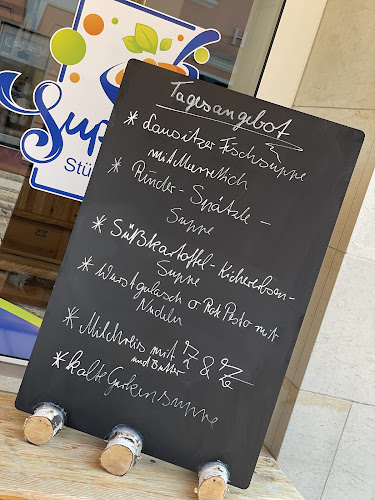 Supp
Stü
Tagesangebot
* Lausitzer Fischsuppe
mit Meerrettich
* Rinder-Spätzle-
Suppe
* Süßkartoffel-Kichererbsen-
Suppe
* Wurstgulasch o. Rote Pesto mit
Nudeln
* Milchreis mit Z & Z
und Butter
* kalte Gurkensuppe